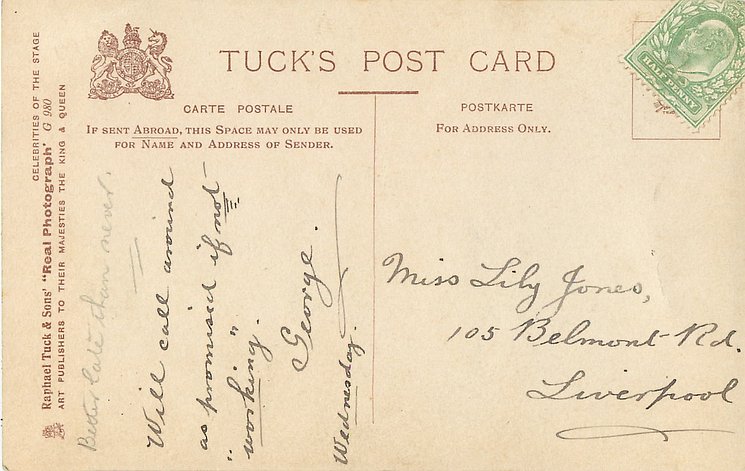 TUCK'S POST CARD
CARTE POSTALE
IF SENT ABROAD, THIS SPACE MAY ONLY BE USED
FOR NAME AND ADDRESS OF SENDER.
POSTKARTE
FOR ADDRESS ONLY.
HALF PENNY
CELEBRITIES OF THE STAGE
Raphael Tuck & Sons' "Real Photograph" G 980
ART PUBLISHERS TO THEIR MAJESTIES THE KING & QUEEN
Better late than never.
Will call around
as promised if not
"working".
George.
Wednesday.
Miss Lily Jones,
105 Belmont Rd.
Liverpool